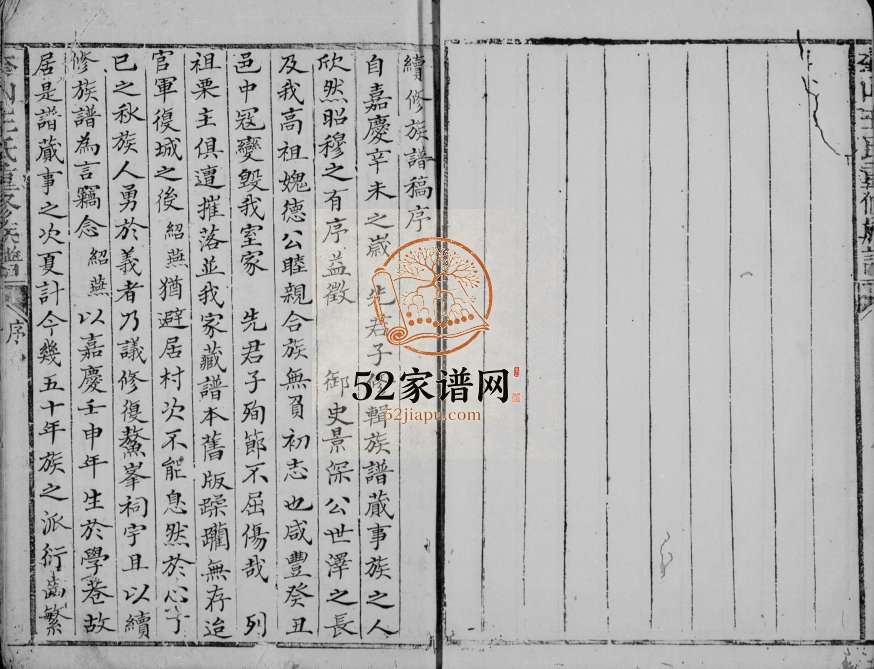 續修族譜稿序
自嘉慶辛未之歲 先君子修輯族譜蕆事族之人
欣然昭穆之有序益徵 御史景深公世澤之長
及我高祖媿德公睦親合族無負初志也咸豐癸丑
邑中寇變毀我室家 先君子殉節不屈傷哉 列
祖栗主俱遭摧落並我家藏譜本舊版躁躪無存迨
官軍復城之後紹燕猶避居村次不能息然於心丁
巳之秋族人勇於義者乃議修復鰲峯祠宇且以續
修族譜為言竊念紹燕以嘉慶壬申年生於學巷故
居是譜蕆事之次夏計今幾五十年族之派衍齒繁
王氏重修族譜
序
52家谱网
52jiapu.com